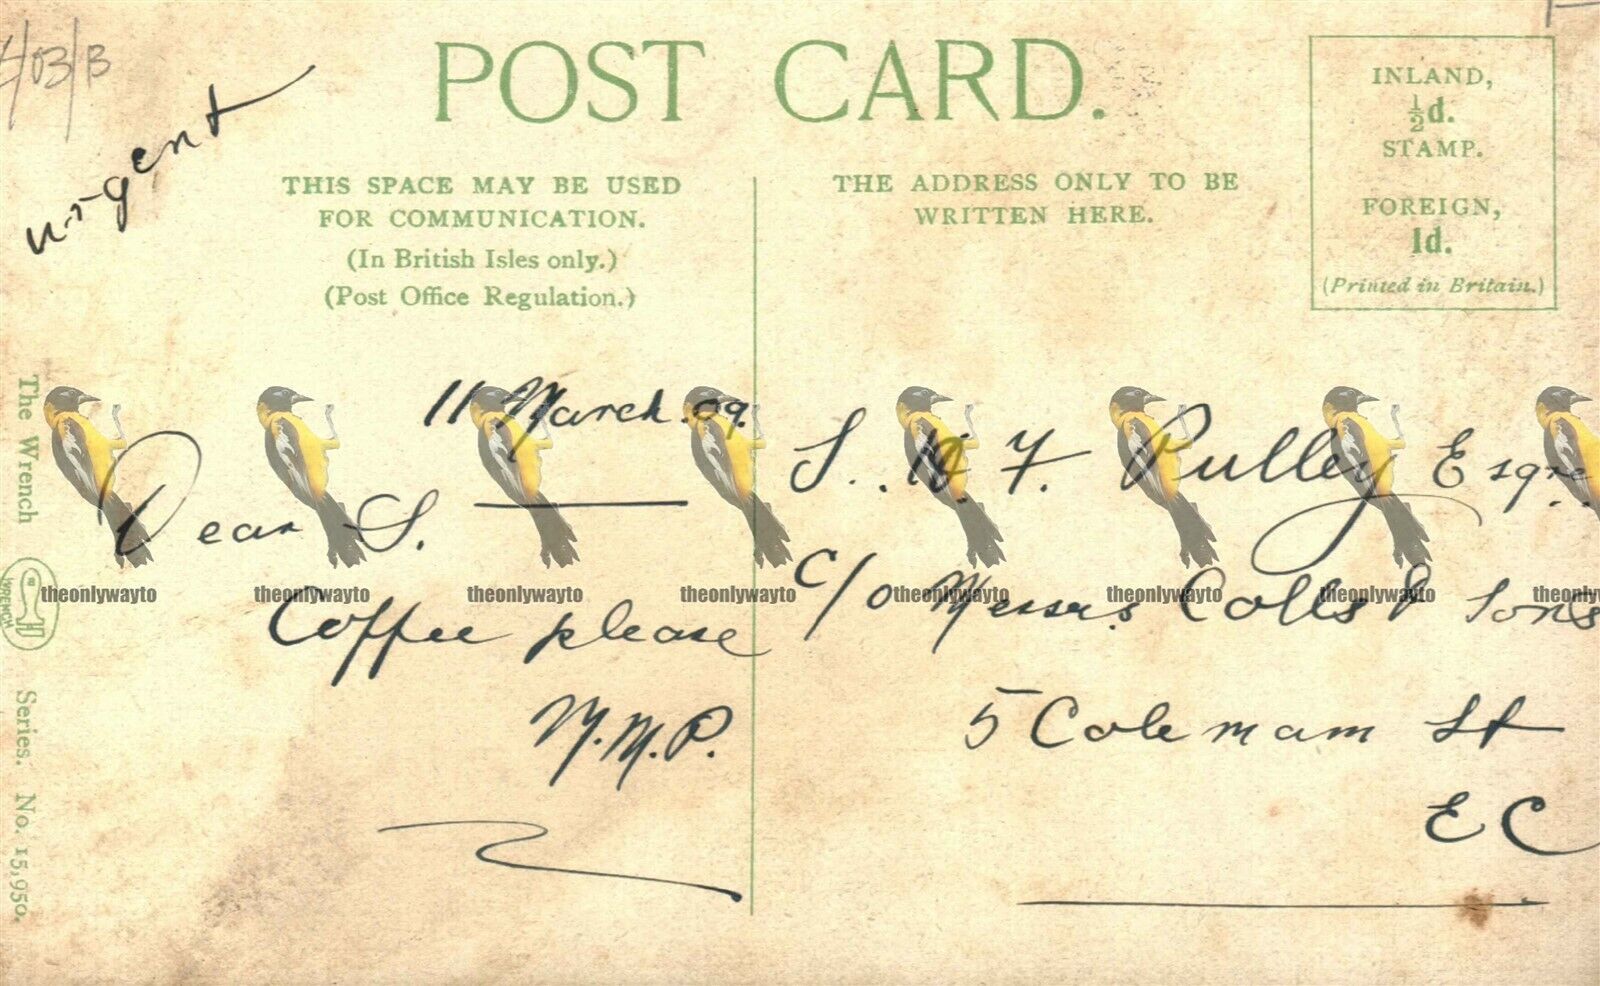 /03/B
urgent
POST CARD.
THIS SPACE MAY BE USED
FOR COMMUNICATION.
(In British Isles only.)
(Post Office Regulation.)
THE ADDRESS ONLY TO BE
WRITTEN HERE.
INLAND,
½d.
STAMP.
FOREIGN,
1d.
(Printed in Britain.)
The Wrench Series. No. 15,950.
WRENCH
11 March. 09.
Dear S.
Coffee please
M.M.P.
S.. H. F. Pulley Esqre.
c/o Messrs. Colls & Sons
5 Coleman St
EC
theonlywayto theonlywayto theonlywayto theonlywayto theonlywayto theonlywayto theonlywayto theonlywayto